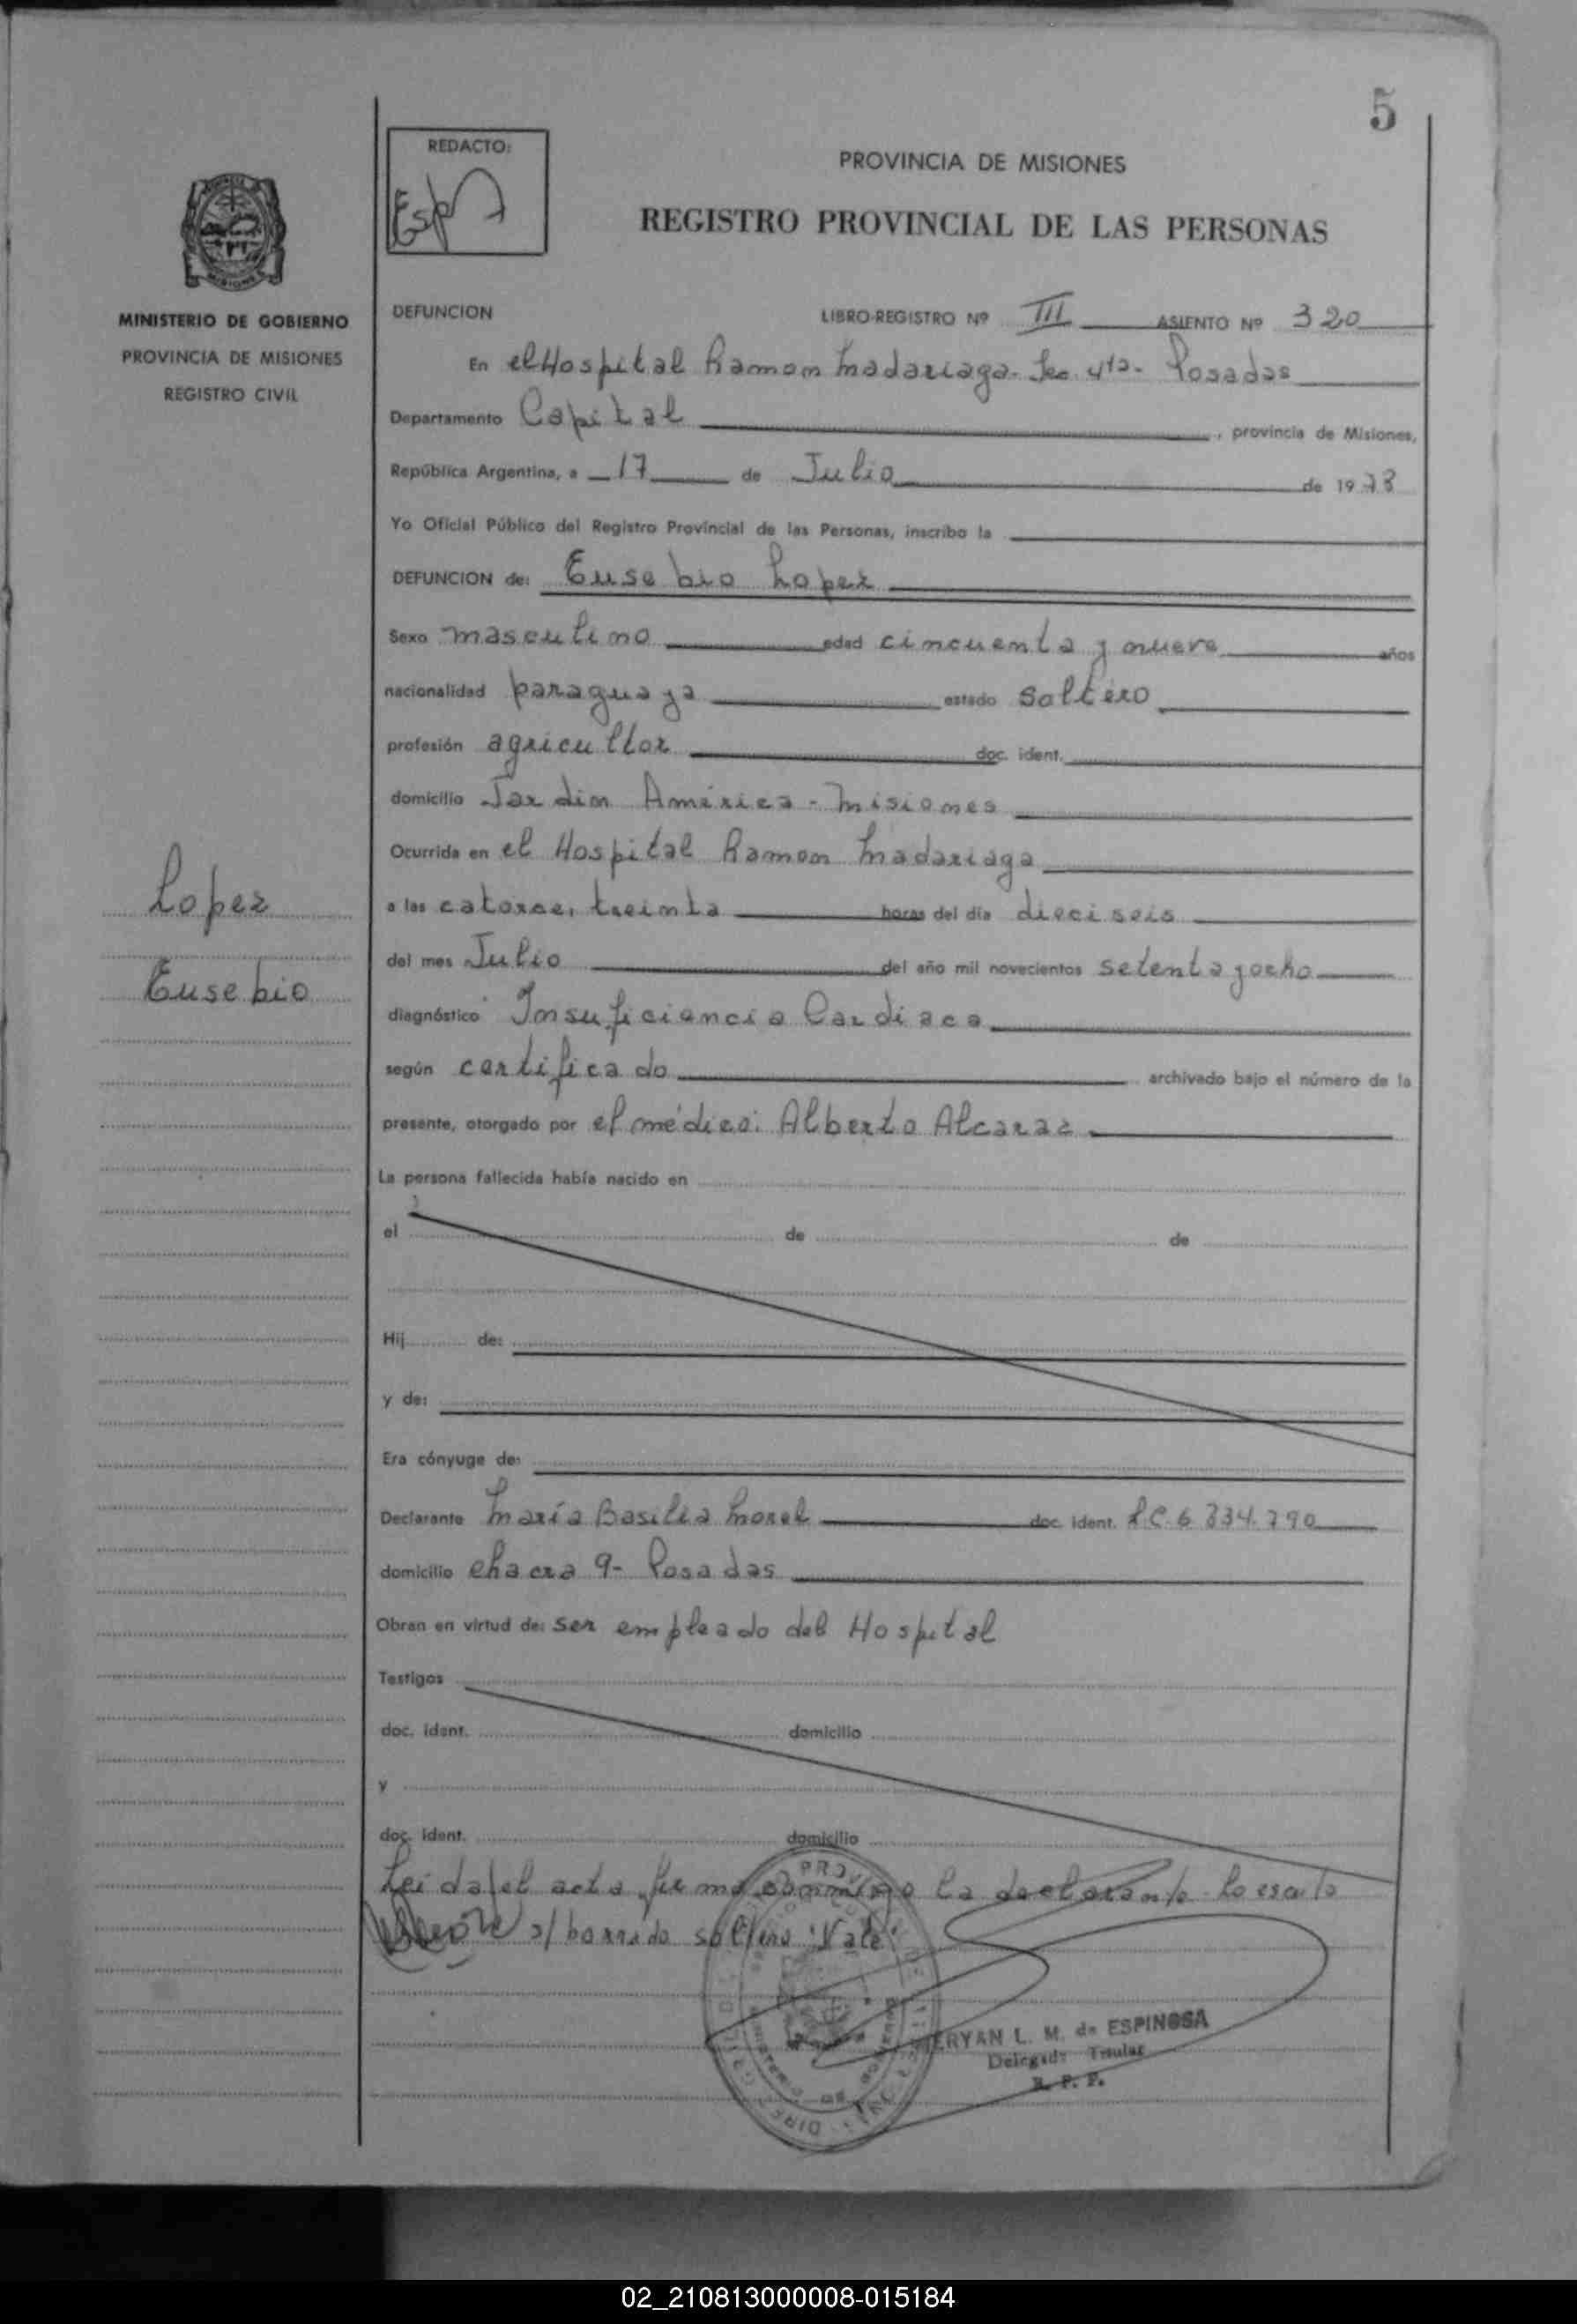 5
REDACTO:
Esp
PROVINCIA DE MISIONES
REGISTRO PROVINCIAL DE LAS PERSONAS
MINISTERIO DE GOBIERNO
PROVINCIA DE MISIONES
REGISTRO CIVIL
Lopez
Eusebio
DEFUNCION LIBRO-REGISTRO Nº III ASIENTO Nº 320
En el Hospital Ramon Madariaga - Sec. 4ta - Posadas
Departamento Capital, provincia de Misiones,
República Argentina, a 17 de Julio de 1978
Yo Oficial Público del Registro Provincial de las Personas, inscribo la
DEFUNCION de: Eusebio Lopez
Sexo masculino edad cincuenta y nueve años
nacionalidad paraguaya estado soltero
profesión agricultor doc. ident.
domicilio Jardin América - Misiones
Ocurrida en el Hospital Ramon Madariaga
a las catorce, treinta horas del día dieciseis
del mes Julio del año mil novecientos setenta y ocho
diagnóstico Insuficiencia Cardiaca
según certificado archivado bajo el número de la
presente, otorgado por el médico: Alberto Alcaraz
La persona fallecida había nacido en
el de de
Hij de:
y de:
Era cónyuge de:
Declarante María Basilia Morel doc. ident. L.C. 6.334.790
domicilio chacra 9 - Posadas
Obran en virtud de: ser empleado del Hospital
Testigos
doc. ident. domicilio
y
doc. ident. domicilio
Leida el acta, firma conmigo la declarante
s/borrado soltero "Vale"
MERYAN L. M. de ESPINOSA
Delegada Titular
R. P. P.
02_210813000008-015184